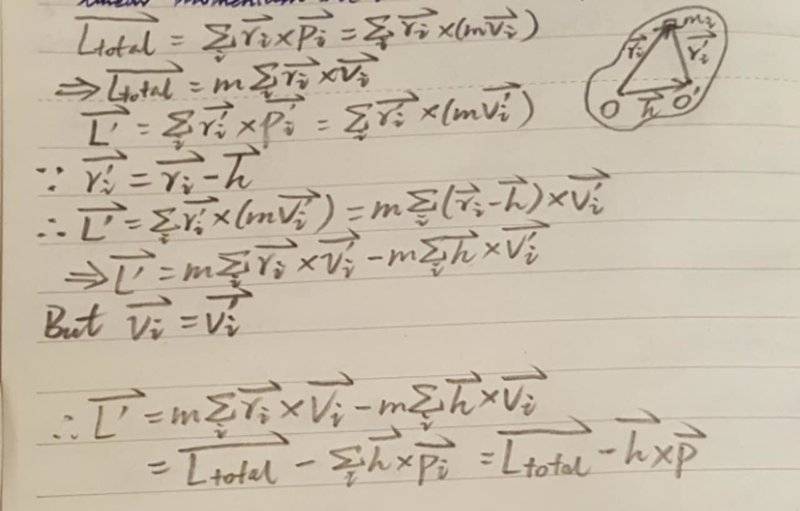 linear momentum
$\overrightarrow{L_{total}} = \sum_i \vec{r_i} \times \vec{p_i} = \sum_i \vec{r_i} \times (m\vec{v_i})$
$\Rightarrow \overrightarrow{L_{total}} = m \sum_i \vec{r_i} \times \vec{v_i}$
$\vec{L'} = \sum_i \vec{r_i'} \times \vec{p_i'} = \sum_i \vec{r_i'} \times (m\vec{v_i'})$
$\because \vec{r_i'} = \vec{r_i} - \vec{h}$
$\therefore \vec{L'} = \sum_i \vec{r_i'} \times (m\vec{v_i'}) = m \sum_i (\vec{r_i} - \vec{h}) \times \vec{v_i'}$
$\Rightarrow \vec{L'} = m \sum_i \vec{r_i} \times \vec{v_i'} - m \sum_i \vec{h} \times \vec{v_i'}$
But $\vec{v_i} = \vec{v_i'}$
$\therefore \vec{L'} = m \sum_i \vec{r_i} \times \vec{v_i} - m \sum_i \vec{h} \times \vec{v_i}$
$= \overrightarrow{L_{total}} - \sum_i \vec{h} \times \vec{p_i} = \overrightarrow{L_{total}} - \vec{h} \times \vec{p}$
$m_i$
$\vec{r_i}$ $\vec{r_i'}$
O $\vec{h}$ O'